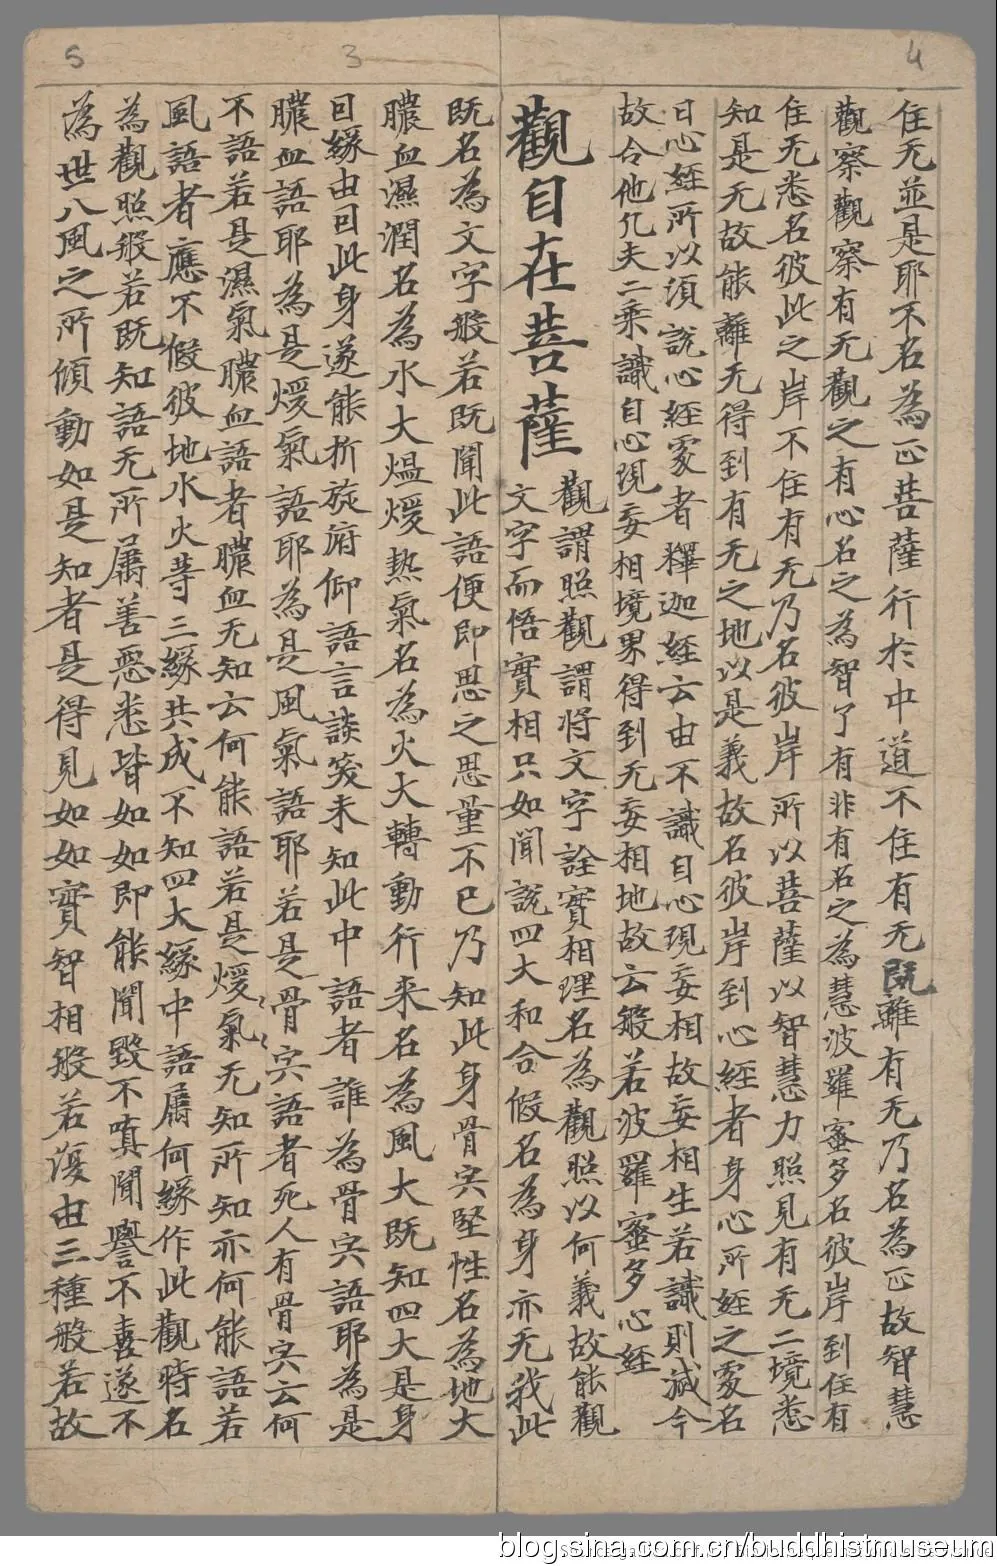 5
3
4
住无並是耶不名為正菩薩行於中道不住有无既離有无乃名為正故智慧
觀察觀察有无觀之有心名之為智了有非有名之為慧波羅蜜多名彼岸到住有
住无悉名彼此之岸不住有无乃名彼岸所以菩薩以智慧力照見有无二境悉
知是无故能離无得到有无之地以是義故名彼岸到心經者身心所經之處名
曰心經所以須說心經家者釋迦經云由不識自心現妄相故妄相生若識則滅今
故合他凡夫二乘識自心現妄相境界得到无妄相地故云般若波羅蜜多心經
觀自在菩薩
觀謂照觀謂將文字詮實相理名為觀照以何義故能觀
文字而悟實相只如聞說四大和合假名為身亦无我此
既名為文字般若既聞此語便即思之思量不已乃知此身骨宍堅性名為地大
膿血濕潤名為水大熅煖熱氣名為火大轉動行来名為風大既知四大是身
曰緣由曰此身遂能折旋府仰語言談笑未知此中語者誰為骨宍語耶為是
膿血語耶為是煖氣語耶為是風氣語耶若是骨宍語者死人有骨宍云何
不語若是濕氣膿血語者膿血无知云何能語若是煖氣无知所知亦何能語若
風語者應不假彼地水火等三緣共成不知四大緣中語屬何緣作此觀時名
為觀照般若既知語无所屬善惡悉皆如如即能聞毀不嗔聞譽不喜遂不
為世八風之所傾動如是知者是得見如如實智相般若復由三種般若故
blog.sina.com.cn/buddhistmuseum